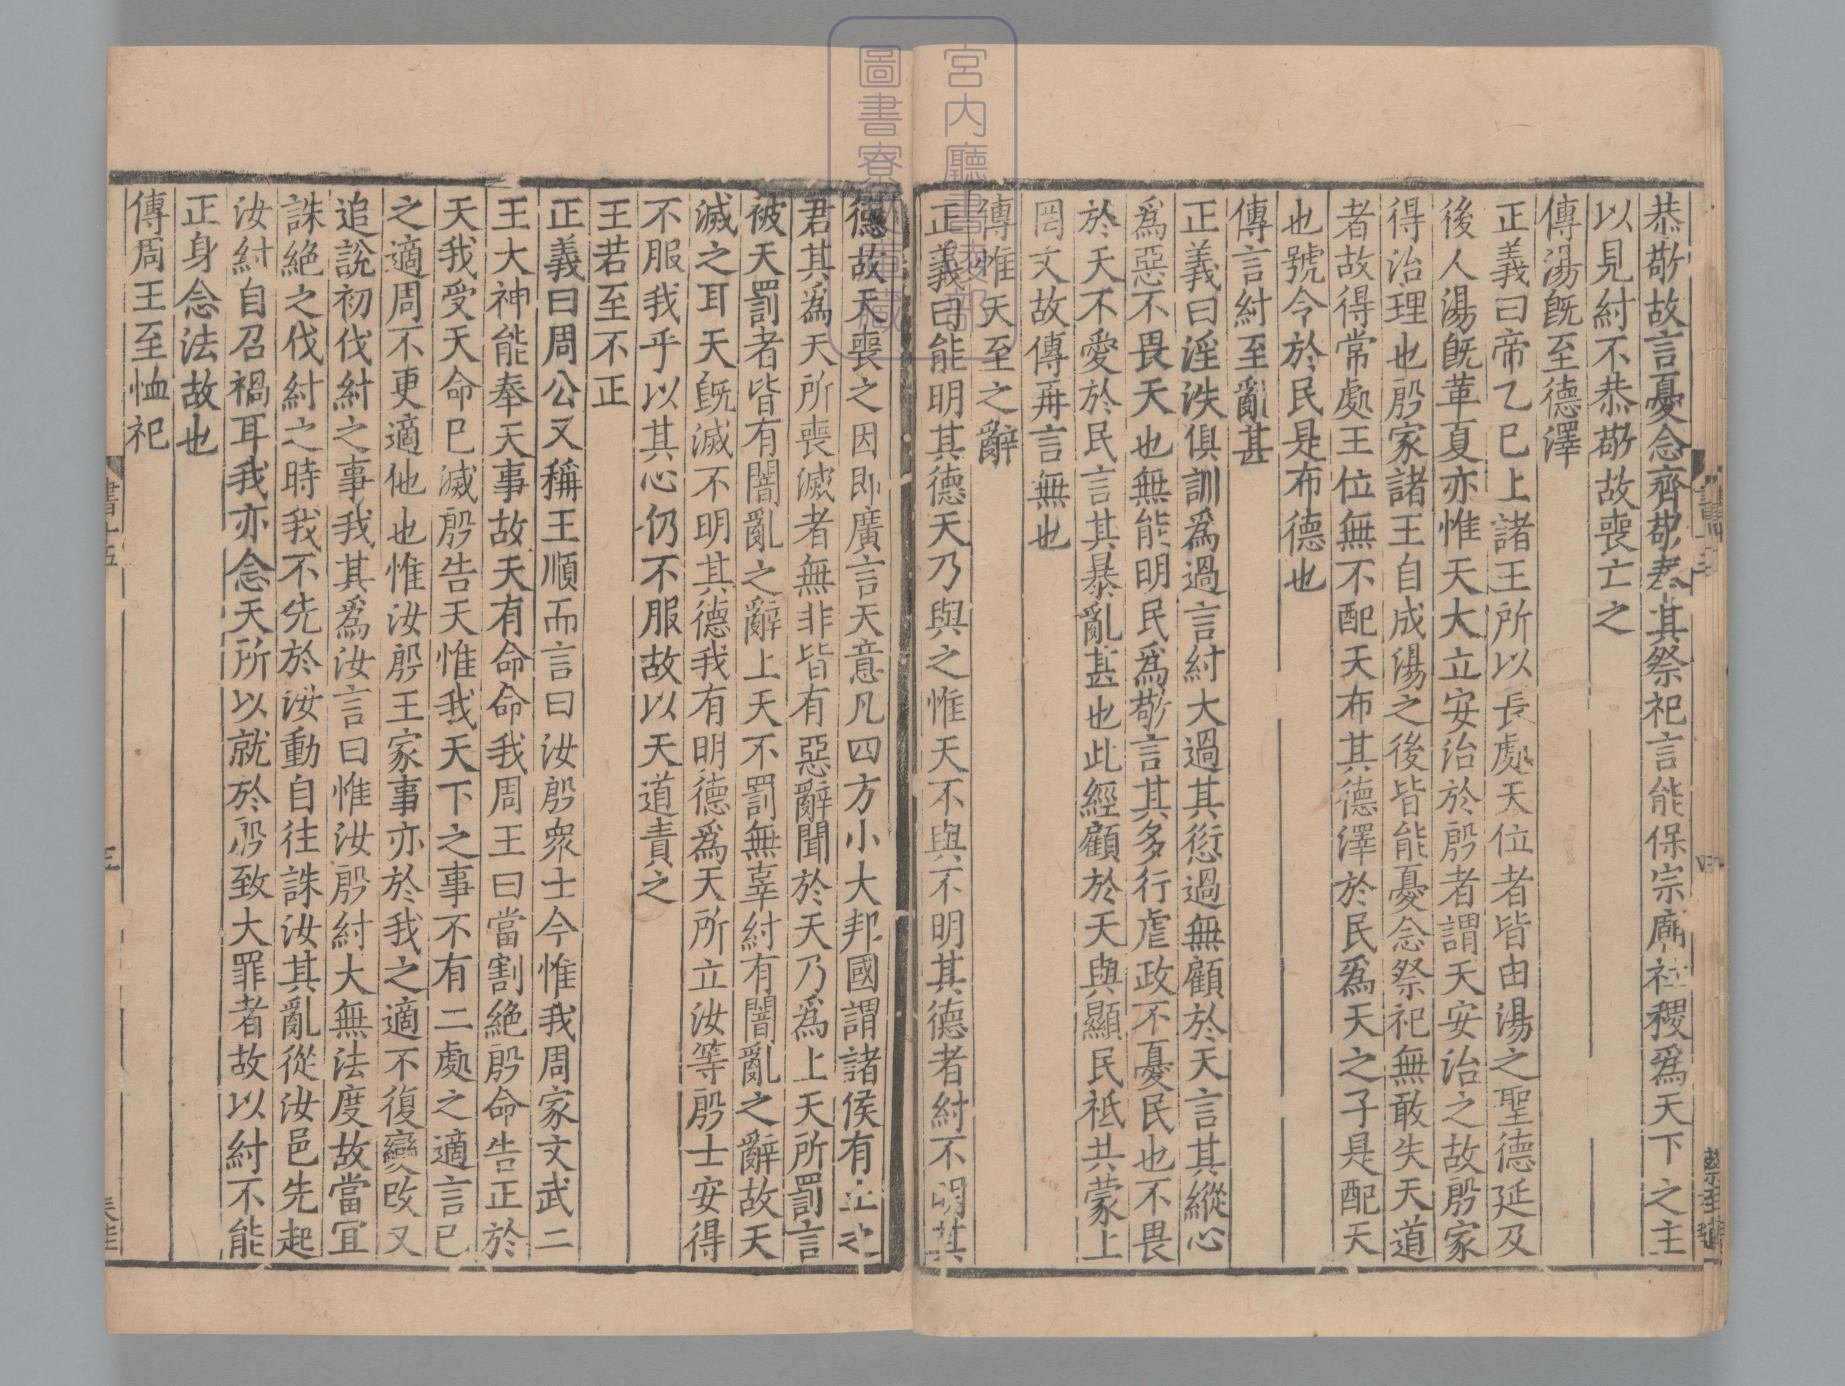 恭敬故言憂念齊敬奉其祭祀言能保宗廟社稷爲天下之主
以見紂不恭敬故喪亡之
傳湯旣至德澤
正義曰帝乙已上諸王所以長處天位者皆由湯之聖德延及
後人湯旣革夏亦惟天大立安治於殷者謂天安治之故殷家
得治理也殷家諸王自成湯之後皆能憂念祭祀無敢失天道
者故得常處王位無不配天布其德澤於民爲天之子是配天
也號令於民是布德也
傳言紂至亂甚
正義曰淫泆俱訓爲過言紂大過其愆過無顧於天言其縱心
爲惡不畏天也無能明民爲敬言其多行虐政不憂民也不畏
於天不愛於民言其暴亂甚也此經顧於天與顯民祗共蒙上
罔文故傳再言無也
傳惟天至之辭
正義曰能明其德天乃與之惟天不與不明其德者紂不明其
德故天喪之因即廣言天意凡四方小大邦國謂諸侯有土之
君其爲天所喪滅者無非皆有惡辭聞於天乃爲上天所罰言
被天罰者皆有闇亂之辭上天不罰無辜紂有闇亂之辭故天
滅之耳天旣滅不明其德我有明德爲天所立汝等殷士安得
不服我乎以其心仍不服故以天道責之
王若至不正
正義曰周公又稱王順而言曰汝殷衆士今惟我周家文武二
王大神能奉天事故天有命命我周王曰當割絕殷命告正於
天我受天命已滅殷告天惟我天下之事不有二處之適言已
之適周不更適他也惟汝殷王家事亦於我之適不復變改又
追說初伐紂之事我其爲汝言曰惟汝殷紂大無法度故當宜
誅絕之伐紂之時我不先於汝動自往誅汝其亂從汝邑先起
汝紂自召禍耳我亦念天所以就於殷致大罪者故以紂不能
正身念法故也
傳周王至恤祀
書十五
宮内廳書陵部
圖書寮文庫藏